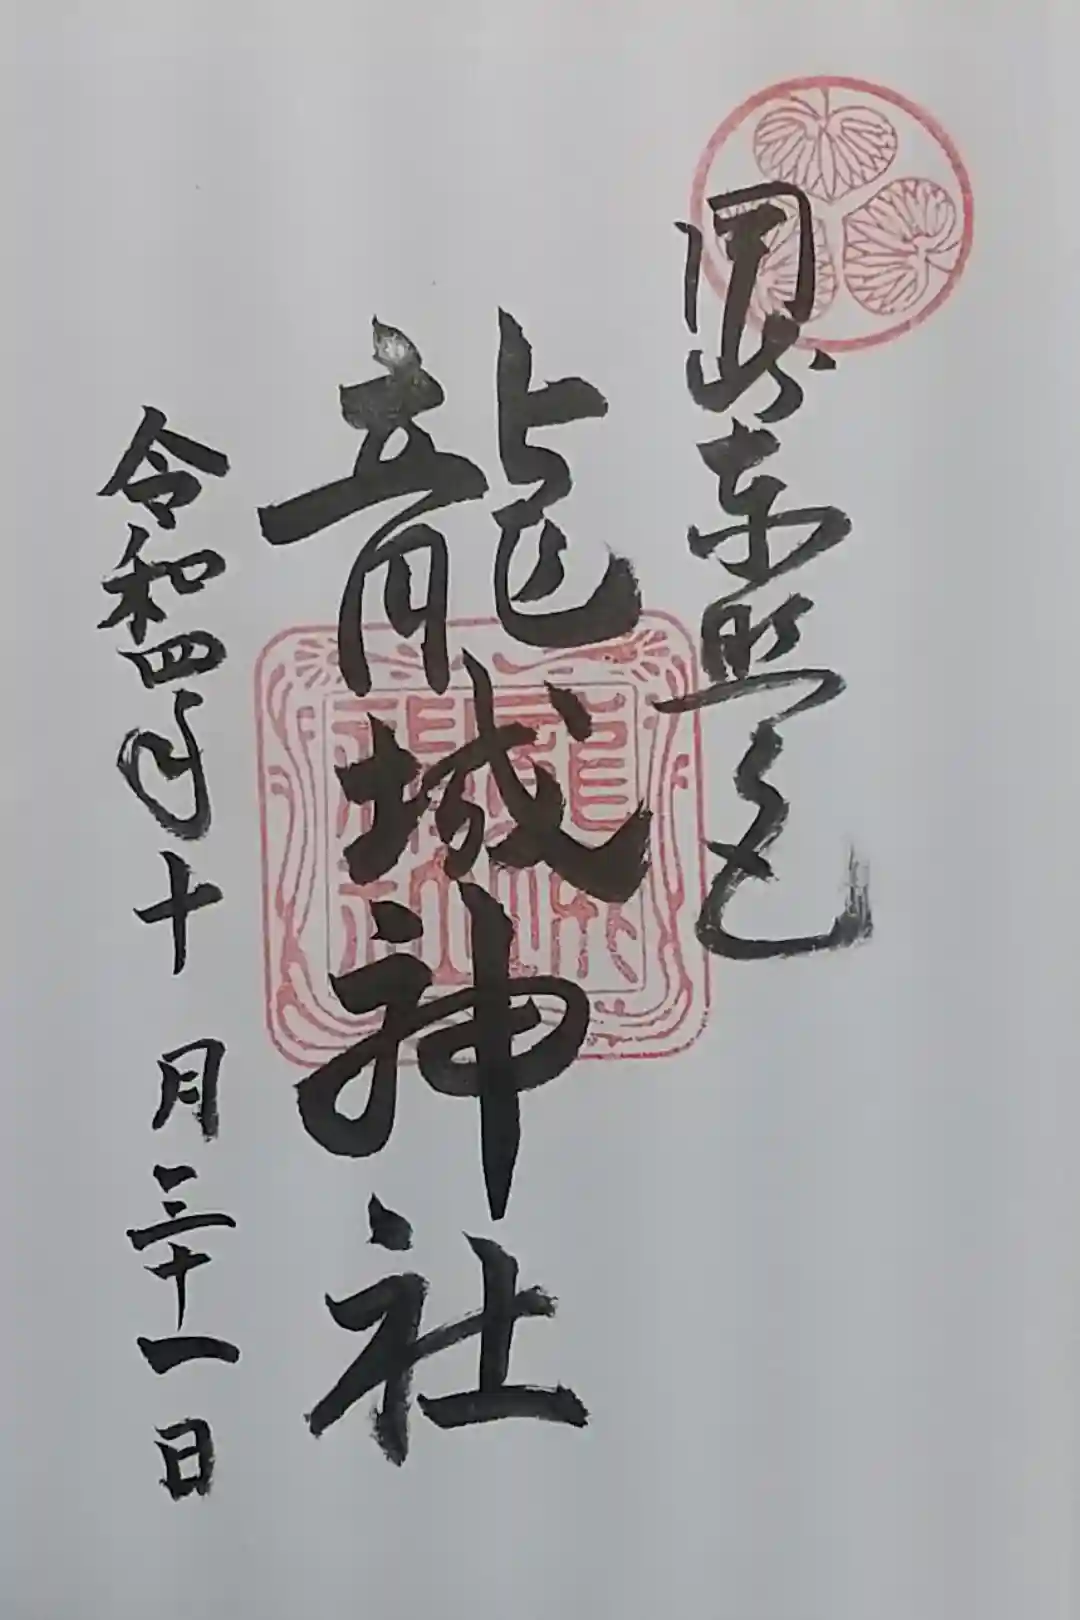 岡崎東照宮
龍城神社
令和四年十月三十一日
龍城神社